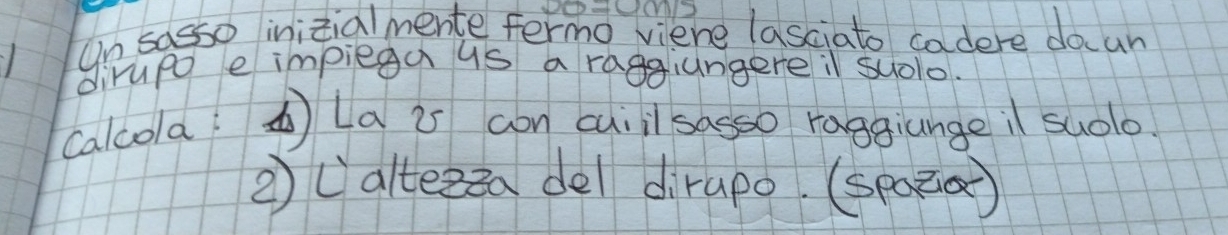 v0=0m/s
Un sasso inizialmente fermo viene lasciato cadere da un
dirupo e impiega 4s a raggiungere il suolo.
calcola: 1) La v con cui il sasso raggiunge il suolo.
2) L'altezza del dirupo. (spazio)